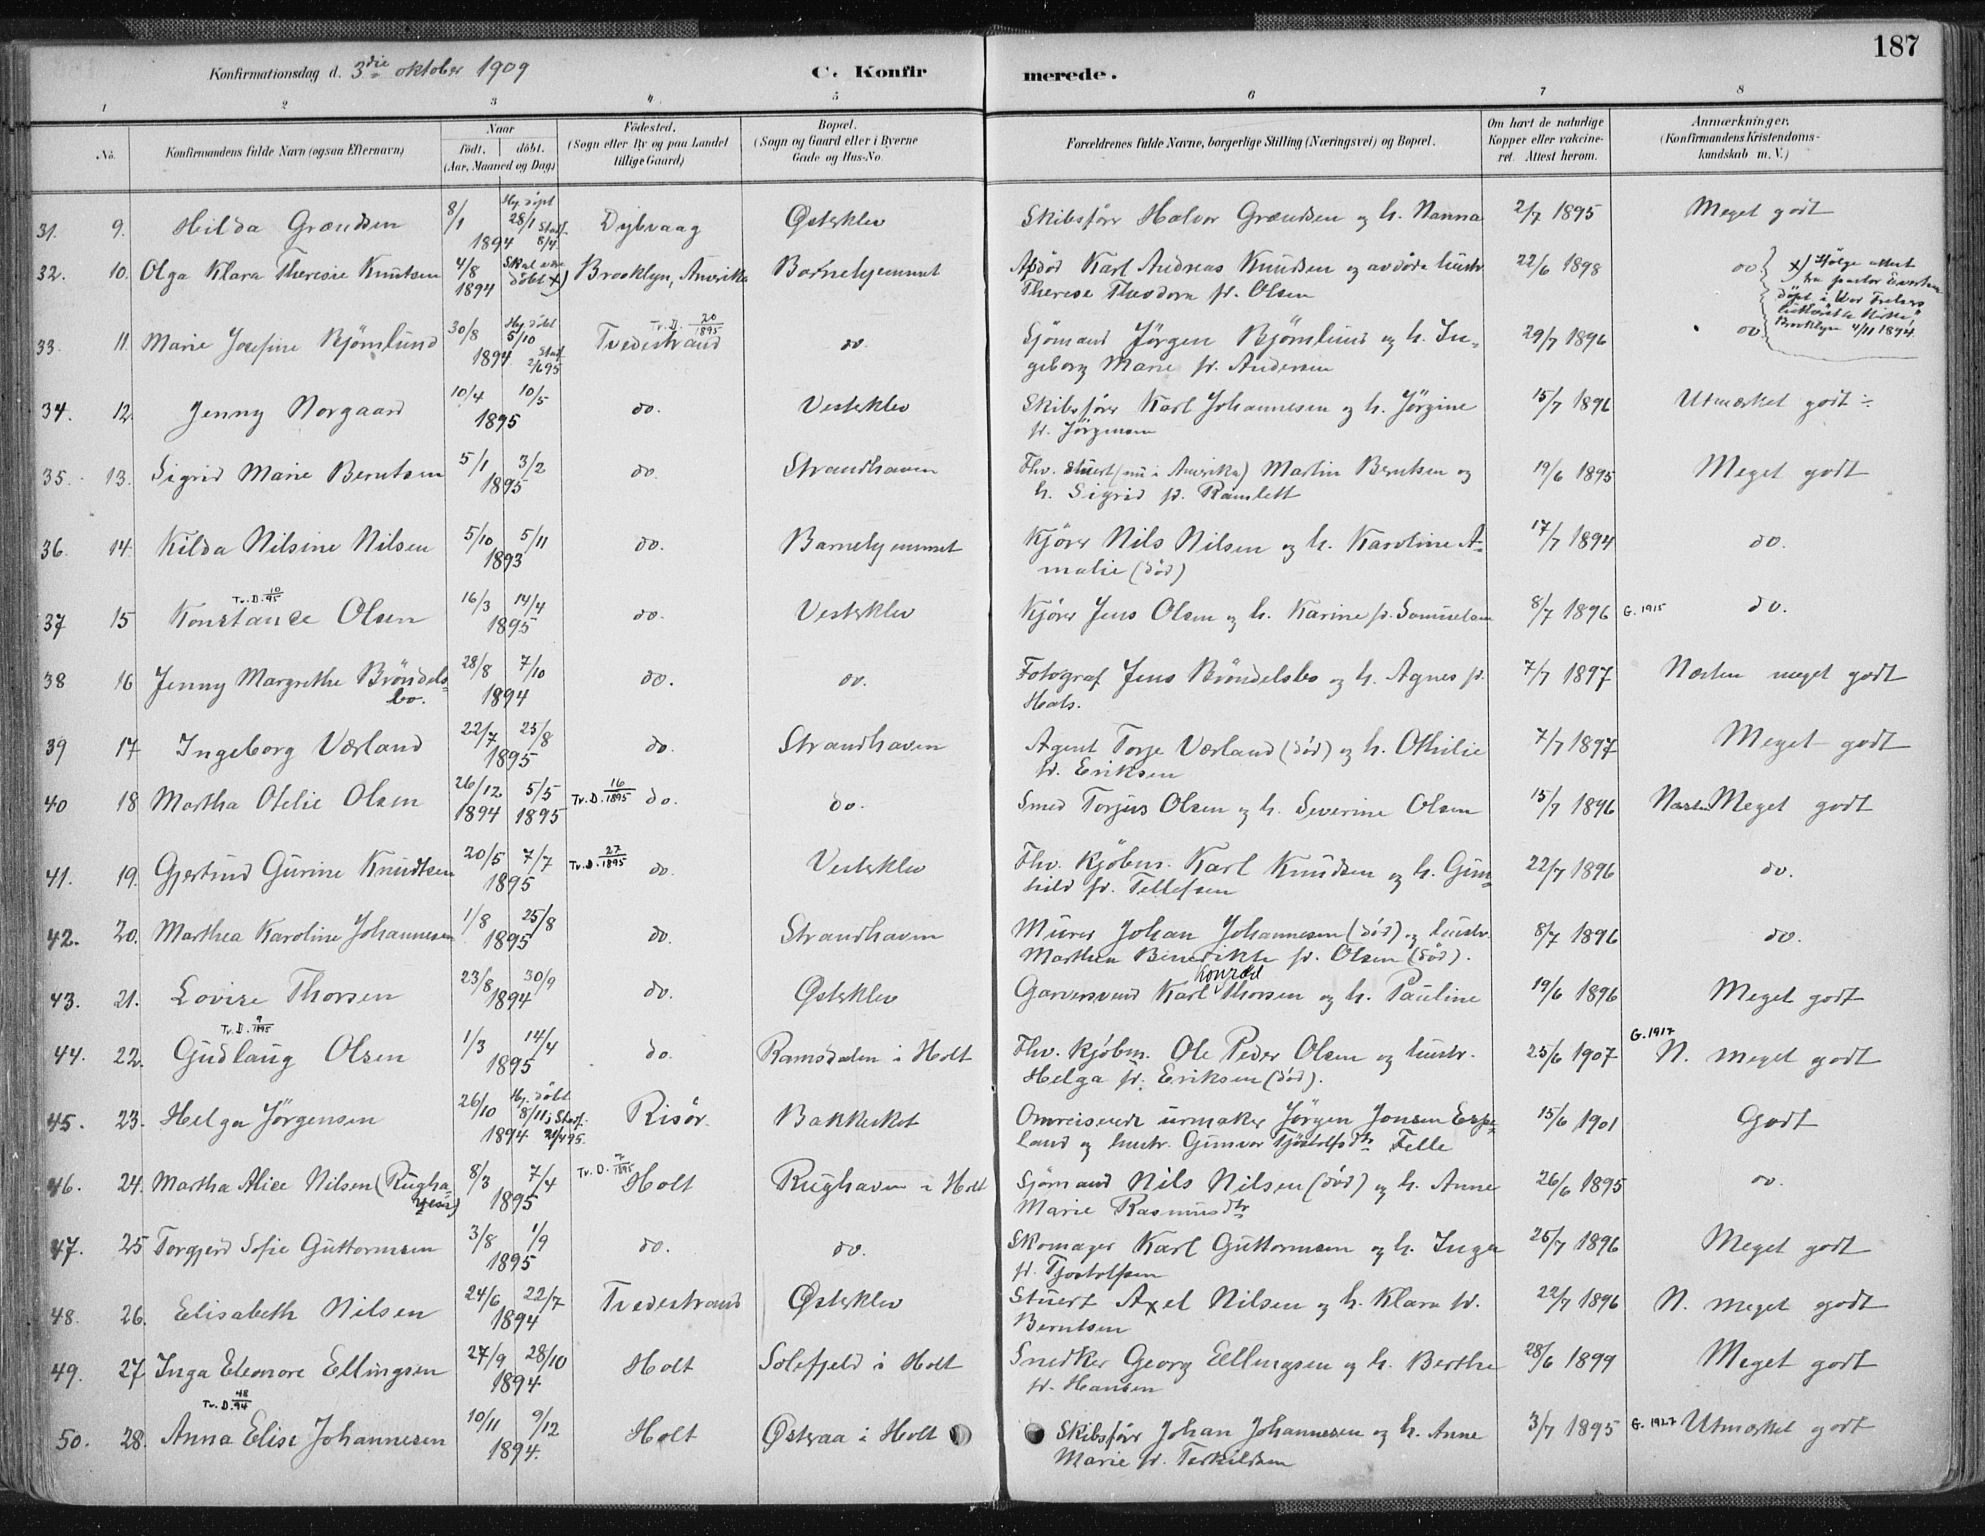 187
Konfirmationsdag d. 3die oktober 1909 C. Konfir merede.
1 2 3 4 5 6 7 8
No. Konfirmandens fulde Navn (ogsaa Efternavn) Naar födt, döbt. (Aar, Maaned og Dag) Födested. (Sogn eller By og paa Landet tillige Gaard) Bopæl. (Sogn og Gaard eller i Byerne Gade og Hus-No. Forældrenes fulde Navne, borgerlige Stilling (Næringsvei) og Bopæl. Om havt de naturlige Kopper eller vakcineret. Attest herom. Anmærkninger. (Konfirmandens Kristendomskundskab m. V.)
31. 9. Hilda Grændsen 8/1 1894 Hj. döpt 28/1 Stadf. 8/4 Dybvaag Østeklev Skibsförer Halvor Grændsen og h. Nanna 2/7 1895 Meget godt
32. 10. Olga Klara Theresie Knutsen 4/8 1894 Skal være döbt x) Brooklyn, Amerika Barnehjemmet Afdød Karl Andreas Knudsen og avdöde hustr. 22/6 1898 do.
Therese Theodora f. Olsen
x) Ifølge attest fra pastor
döpt i Vor Frelsers
Brooklyn 4/11 1894.
33. 11. Marie Josefine Bjömlund 30/8 1894 Hj. döbt 5/10 Stadf. 2/6 95 Tv. D. 20/1895 Tvedestrand do. Sjömand Jörgen Bjömlund og h. In- 29/7 1896 do.
geborg Marie f. Andersen
34. 12. Jenny Norgaard 10/4 10/5 1895 do. Vesteklev Skibsförer Karl Johannesen og h. Jörgine 15/7 1896 Utmerket godt
f. Jörgensen
35. 13. Sigrid Marie Berntsen 5/1 3/2 1895 do. Strandhaven Fhv. stuert (nu i Amerika) Martin Berntsen og 19/6 1895 Meget godt
h. Sigrid f. Ramslett
36. 14. Kilda Nilsine Nilsen 5/10 5/11 1893 do. Barnehjemmet Kjörer Nils Nilsen og h. Karoline A- 17/7 1894 do.
malie (död)
Tv. D. 10/95
37 15 Konstance Olsen 16/3 14/4 1895 do. Vesteklev Kjörer Jens Olsen og h. Karine f. Samuelsen 8/7 1896 G. 1915 do.
38 16 Jenny Margrethe Bröndels- 28/8 7/10 1894 do. do. Fotograf Jens Bröndelsbo og h. Agnes f. 7/7 1897 Næsten meget godt
bo. Hals.
39 17 Ingeborg Værland 22/7 25/8 1895 do. Strandhaven Agent Torje Værland (död) og h. Othilie 7/7 1897 Meget godt
f. Eriksen
40 18 Martha Otelie Olsen 26/12 1894 5/5 1895 Tv. D. 16/1895 do. do. Smed Torjus Olsen og h. Severine Olsen 15/7 1896 Næsten Meget godt
41. 19. Gjertrud Gurine Knudtsen 20/5 7/7 1895 Tv. D. 27/1895 do. Vesteklev Fhv. kjöbm. Karl Knudsen og h. Gun- 22/7 1896 do.
hild f. Tellefsen
42. 20. Marthea Karoline Johannesen 1/8 25/8 1895 do. Strandhaven Murer Johan Johannesen (död) og hustr. 8/7 1896 do.
Marthea Benedikte f. Olsen (död).
43. 21. Lovise Thorsen 23/8 30/9 1894 do. Østeklev Garversvend Karl Konrad Thorsen og h. Pauline 19/6 1896 Meget godt
Tv. D. 9/1895
44. 22. Gudlaug Olsen 1/3 14/4 1895 do. Ramsdalen i Holt Fhv. kjöbm. Ole Peder Olsen og hustr. 25/6 1907 G. 1917 N. meget godt
Helga f. Eriksen (död).
45. 23. Helga Jörgensen 26/10 1894 Hj. döbt 8/11, Stadf. 21/4 95. Risör Bakkeskot Omreisende urmaker Jörgen Jonsen Espe- 15/6 1901 Godt
land og hustr. Gunvor Tjöstolfsdtr Felle
46. 24. Martha Alice Nilsen (Rugha- 8/3 7/4 1895 Tv. D. 7/1895 Holt Rughaven i Holt Sjömand Nils Nilsen (död) og h. Anne 26/6 1895 do.
Marie Rasmusdtr
47. 25 Torgjerd Sofie Guttormsen 3/8 1/9 1895 do. do. Skomager Karl Guttormsen og h. Inga 25/7 1896 Meget godt
f. Tjostolfsen
48. 26. Elisabeth Nilsen 24/6 22/7 1894 Tvedestrand Østeklev Stuert Axel Nilsen og h. Klara f. 22/7 1896 N. meget godt
Berntsen
49. 27 Inga Eleonore Ellingsen 27/9 28/10 1894 Holt Solefjeld i Holt Snedker Georg Ellingsen og h. Berthe 28/6 1899 Meget godt
f. Hansen
Tv. D. 48/94
50. 28. Anna Elise Johannesen 10/11 9/12 1894. Holt Østeraa i Holt Skibsförer Johan Johannesen og h. Anne 3/7 1895 G. 1927 Utmerket godt
Marie f. Terkildsen